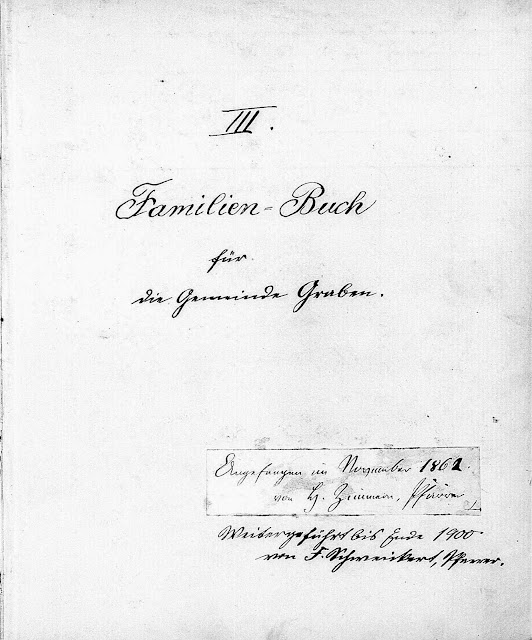 III.
Familien-Buch
für
die Gemeinde Graben.
Angefangen im November 1862
von H. Zimmern, Pfarrer
Weitergeführt bis Ende 1900
von F. Schweickert, Pfarrer.